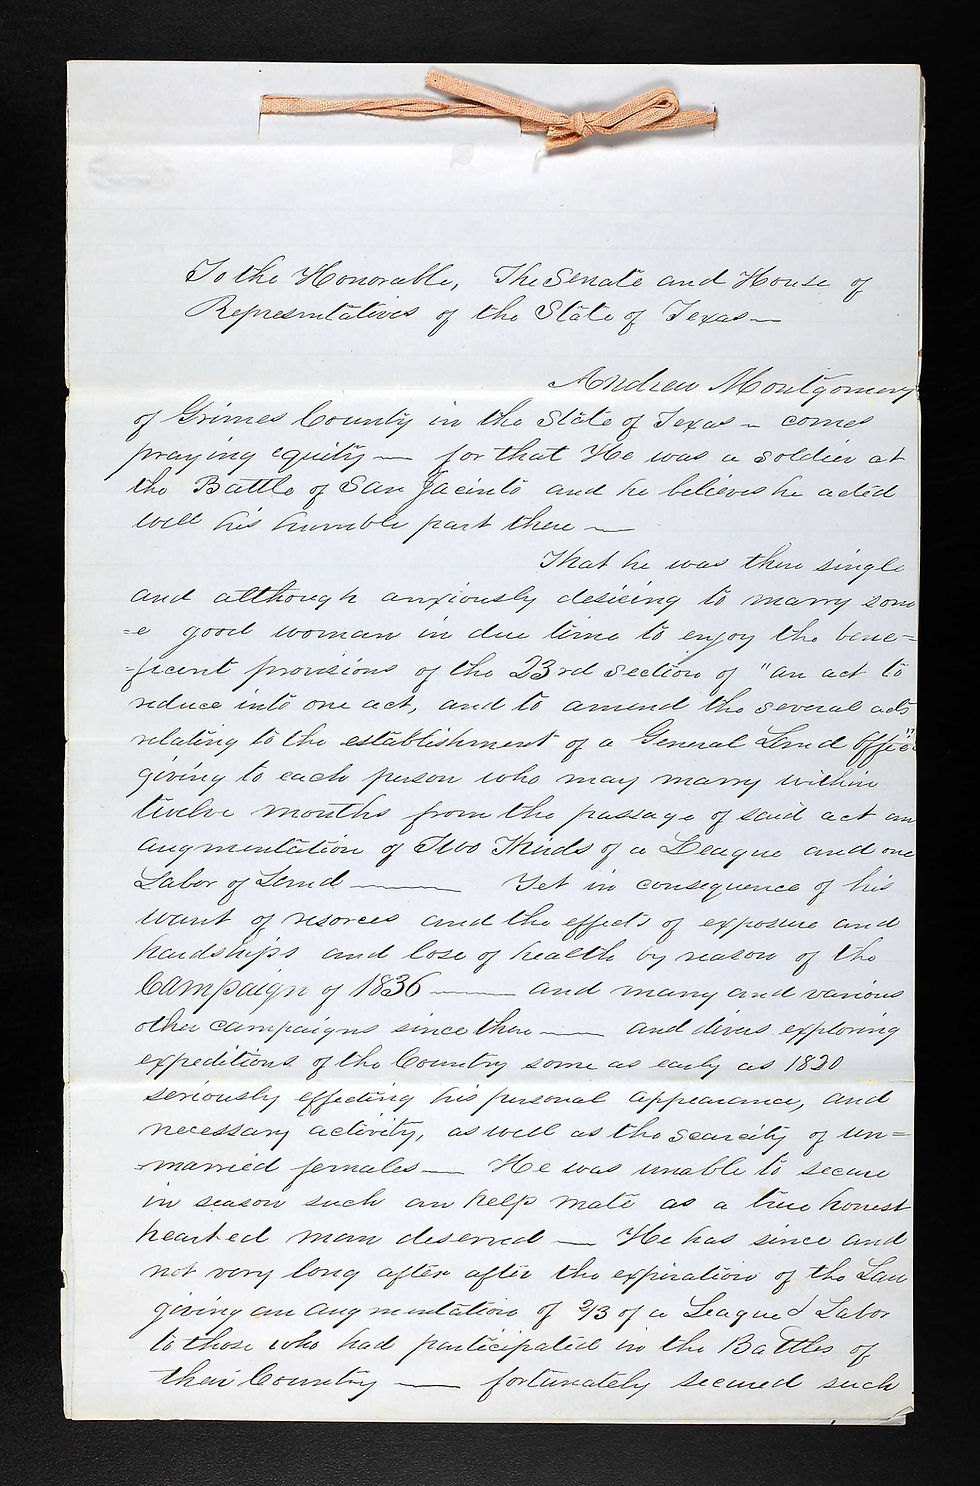 To the Honorable, The Senate and House of
Representatives of the State of Texas —
Andrew Montgomery
of Grimes County in the State of Texas — comes
praying equity — for that He was a soldier at
the Battle of San Jacinto and he believes he acted
well his humble part there —
That he was then single
and although anxiously desiring to marry som
=e good woman in due time to enjoy the bene=
=ficent provisions of the 23rd section of "an act to
reduce into one act, and to amend the several acts
relating to the establishment of a General Land Office"
giving to each person who may marry within
twelve months from the passage of said act an
augmentation of Two Thirds of a League and one
Labor of Land — Yet in consequence of his
want of resorces and the effects of exposure and
hardships and lose of health by reason of the
Campaign of 1836 — and many and various
other campaigns since then — and divers exploring
expeditions of the Country some as early as 1820
seriously effecting his personal appearance, and
necessary activity, as well as the scarcity of un=
=married females — He was unable to secure
in season such an help mate as a true honest
hearted man deserved — He has since and
not very long after after the expiration of the Law
giving an augmentation of 2/3 of a League & Labor
to those who had participated in the Battles of
their Country — fortunately secured such